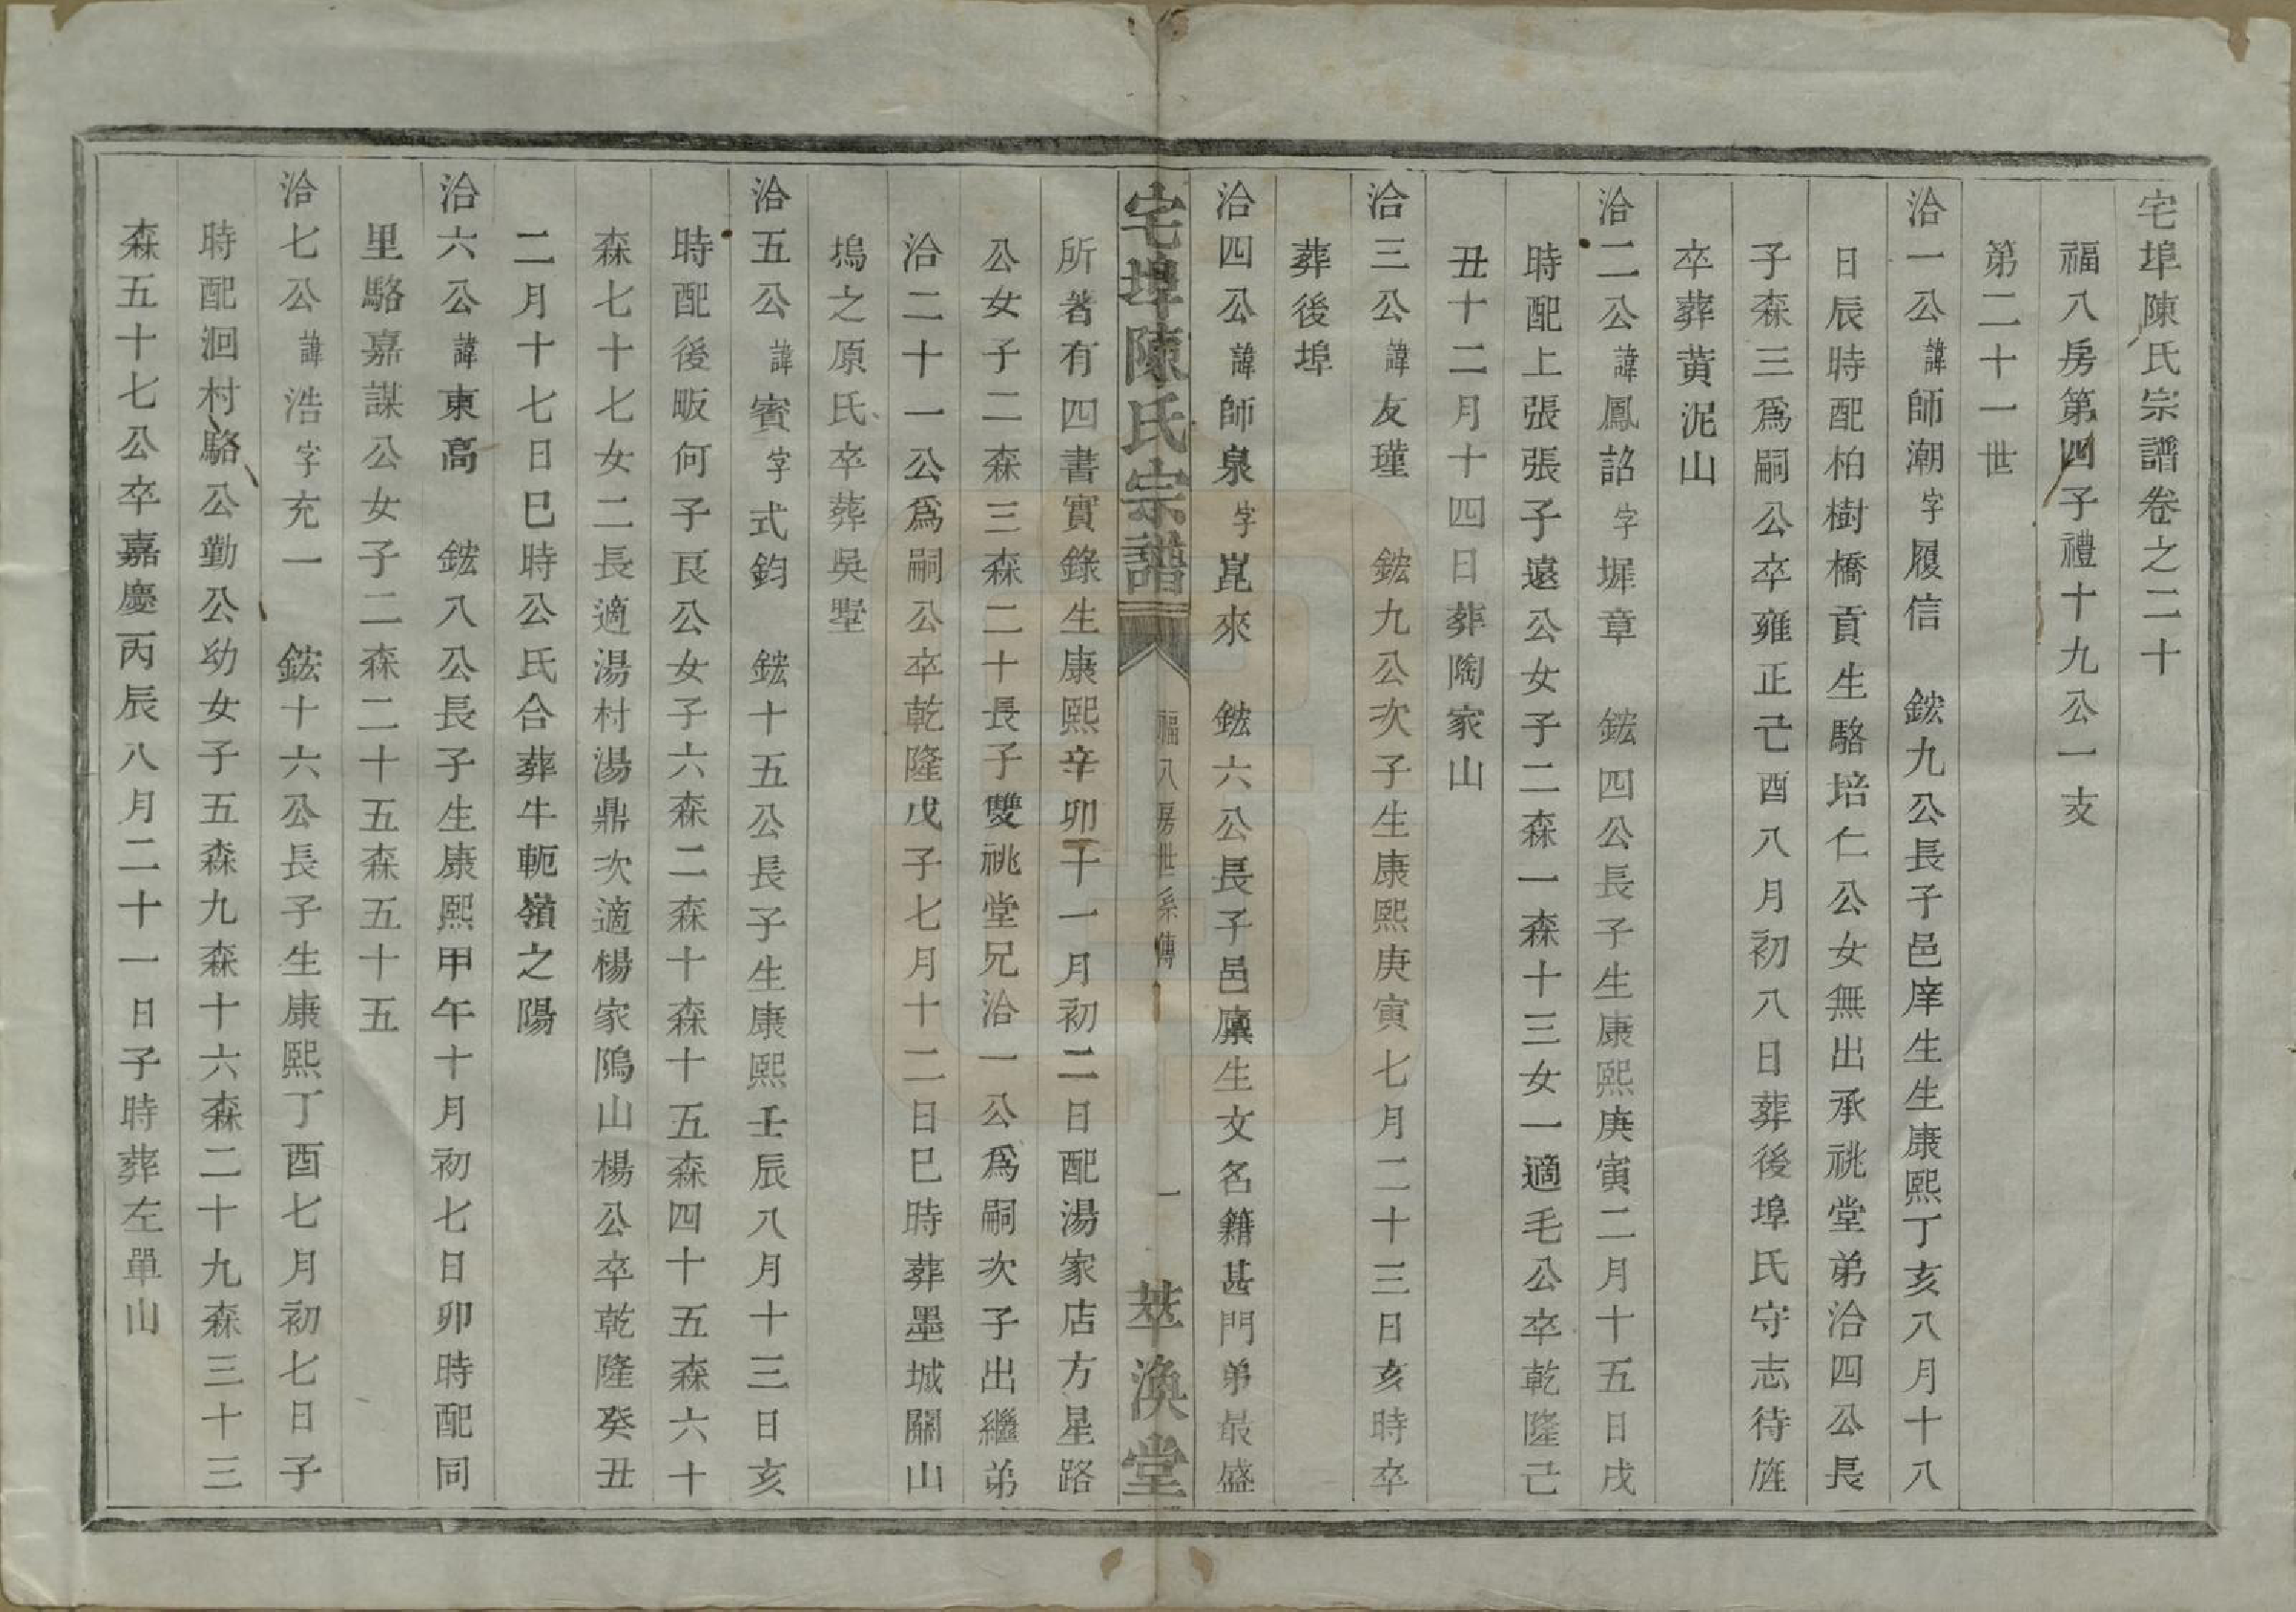 宅埠陳氏宗譜卷之二十
福八房第四子禮十九公一支
第二十一世
洽一公諱師潮字履信　鋐九公長子邑庠生生康熙丁亥八月十八
日辰時配柏樹橋貢生駱培仁公女無出承祧堂弟洽四公長
子森三爲嗣公卒雍正己酉八月初八日葬後埠氏守志待旌
卒葬黄泥山
洽二公諱鳳詔字墀章　鋐四公長子生康熙庚寅二月十五日戌
時配上張張子遠公女子二森一森十三女一適毛公卒乾隆己
丑十二月十四日葬陶家山
洽三公諱友瑾　鋐九公次子生康熙庚寅七月二十三日亥時卒
葬後埠
洽四公諱師泉字崑來　鋐六公長子邑廪生文名籍甚門弟最盛
所著有四書實錄生康熙辛卯十一月初二日配湯家店方星路
公女子二森三森二十長子雙祧堂兄洽一公爲嗣次子出繼弟
洽二十一公爲嗣公卒乾隆戊子七月十二日巳時葬墨城關山
塢之原氏卒葬吳墅
洽五公諱賓字式鈞　鋐十五公長子生康熙壬辰八月十三日亥
時配後畈何子良公女子六森二森十森十五森四十五森六十
森七十七女二長適湯村湯鼎次適楊家隝山楊公卒乾隆癸丑
二月十七日巳時公氏合葬牛軛嶺之陽
洽六公諱東高　鋐八公長子生康熙甲午十月初七日卯時配同
里駱嘉謀公女子二森二十五森五十五
洽七公諱浩字充一　鋐十六公長子生康熙丁酉七月初七日子
時配洄村駱公勤公幼女子五森九森十六森二十九森三十三
森五十七公卒嘉慶丙辰八月二十一日子時葬左單山
宅埠陳氏宗譜
福八房世系傳
一
萃渙堂